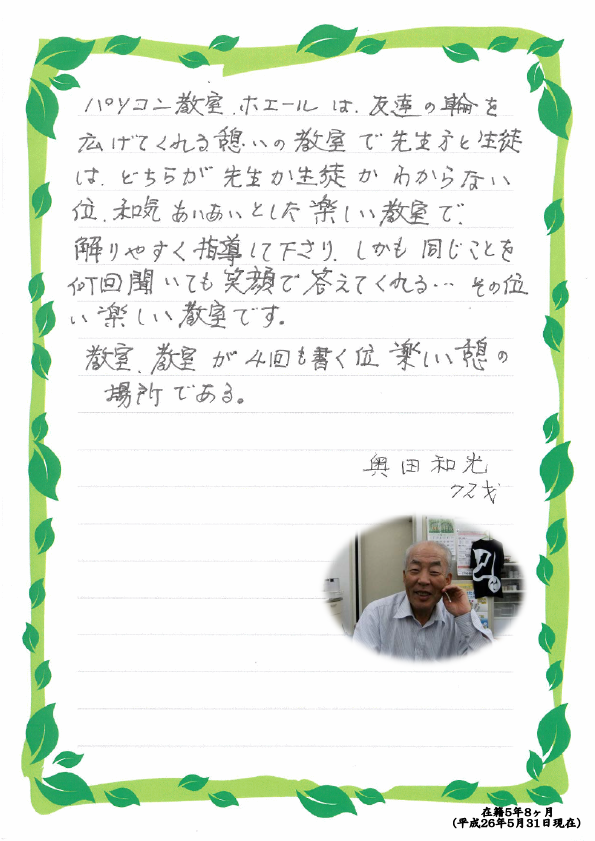 パソコン教室.ホエールは、友達の輪を
広げてくれる憩いの教室で先生方と生徒
は、どちらが先生か生徒かわからない
位、和気あいあいとした楽しい教室で、
解りやすく指導して下さり、しかも同じことを
何回聞いても笑顔で答えてくれる… その位
い楽しい教室です。
教室、教室が4回も書く位楽しい憩の
場所である。
奥田和光
72才
在籍5年8ヶ月
(平成26年5月31日現在)